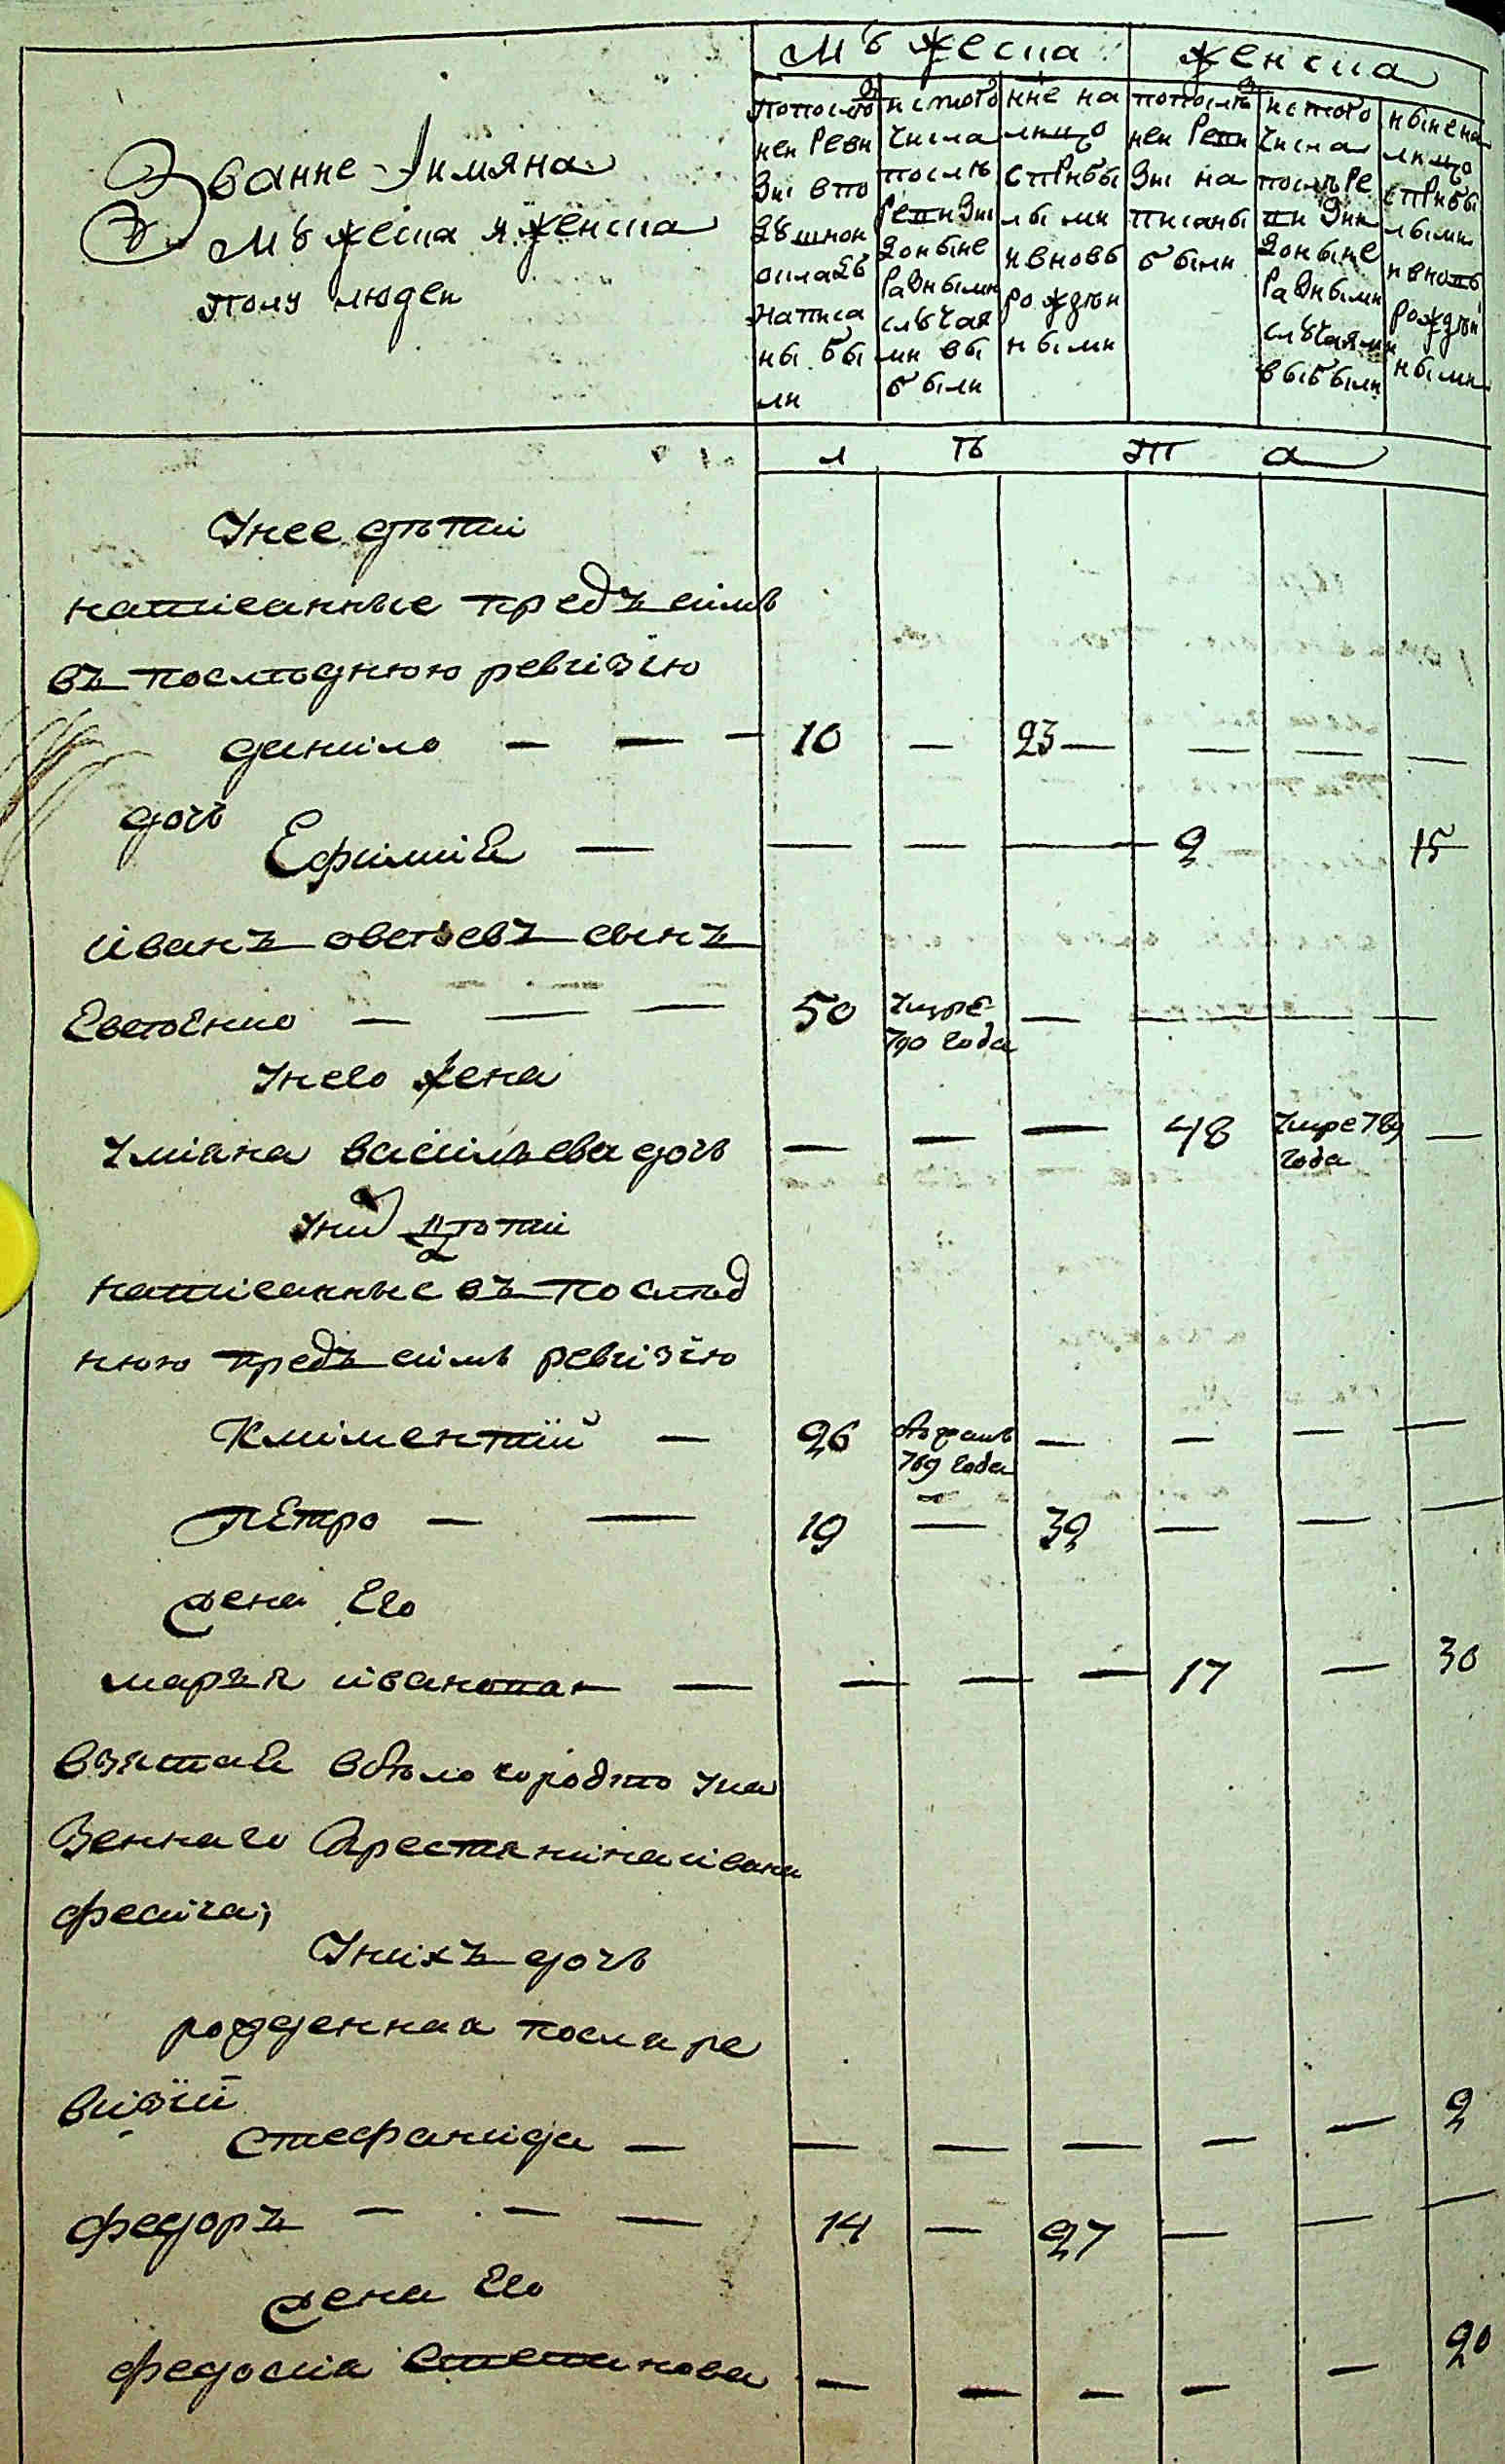 Мужеска
женска
Звание Имяна
Мужеска и женска
полу людеи
попослѣд
неи Реви
зиі впо
душнои
окладъ
написа
ны бы
ли
исътого
числа
послѣ
Ревизиі
доныне
разными
случая
ми вы
были
ныне на
лицо
сприбы
лыми
ивновь
рожден
ными
попослѣд
неи Реви
зиі на
писаны
были
исътого
числа
послѣ ре
ви зии
доныне
разными
случаями
выбыли
ныне на
лицо
сприбы
лыми
ивновь
рожден
ными
л ѣ т а
Унее дѣти
написанные предъ симъ
въ послѣднюю ревизію
данило — — — 10 — 23 — — — —
дочь
Ефиміѣ — — — — 2 15
иванъ овсѣевъ сынъ
Евсѣенко — — — 50 умре — — — —
790 года
Унего жена
Улияна василъева дочь — — — 48 умре 789 —
года
Уних дѣти
написанные въ послѣд
нюю предъ симъ ревизію
Климентий — 26 — — — —
789 года
пЕтро — — 19 — 32 — — —
жена Его
марья иванова — — — — 17 — 30
взятая вбѣло городко ука
зеннаго Крестянина ивана
фесича;
Унихъ дочь
рожденная посля ре
визїи
стефанида — — — — — — 2
федоръ — — — 14 — 27 — — —
жена Его
федосиа степанова — — — — — 20